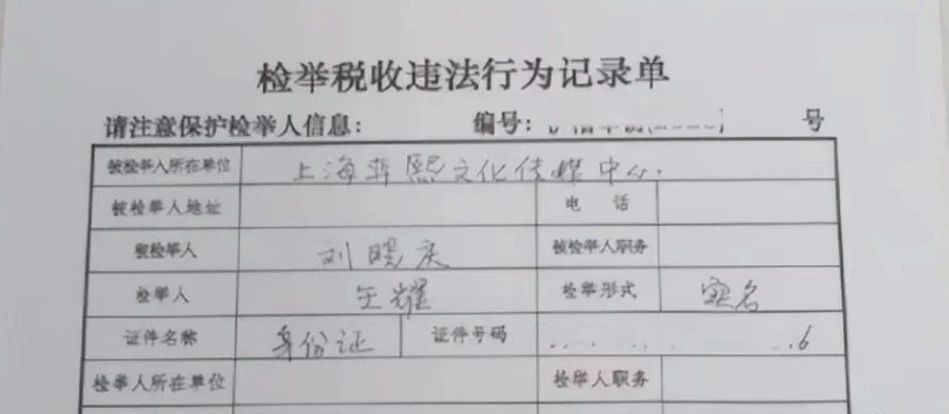 检举税收违法行为记录单
请注意保护检举人信息: 编号: 号
被检举人所在单位 上海 熙文化传媒中心.
被检举人地址 电 话
被检举人 刘晓庆 被检举人职务
检举人 王耀 检举形式 实名
证件名称 身份证 证件号码 6
检举人所在单位 检举人职务